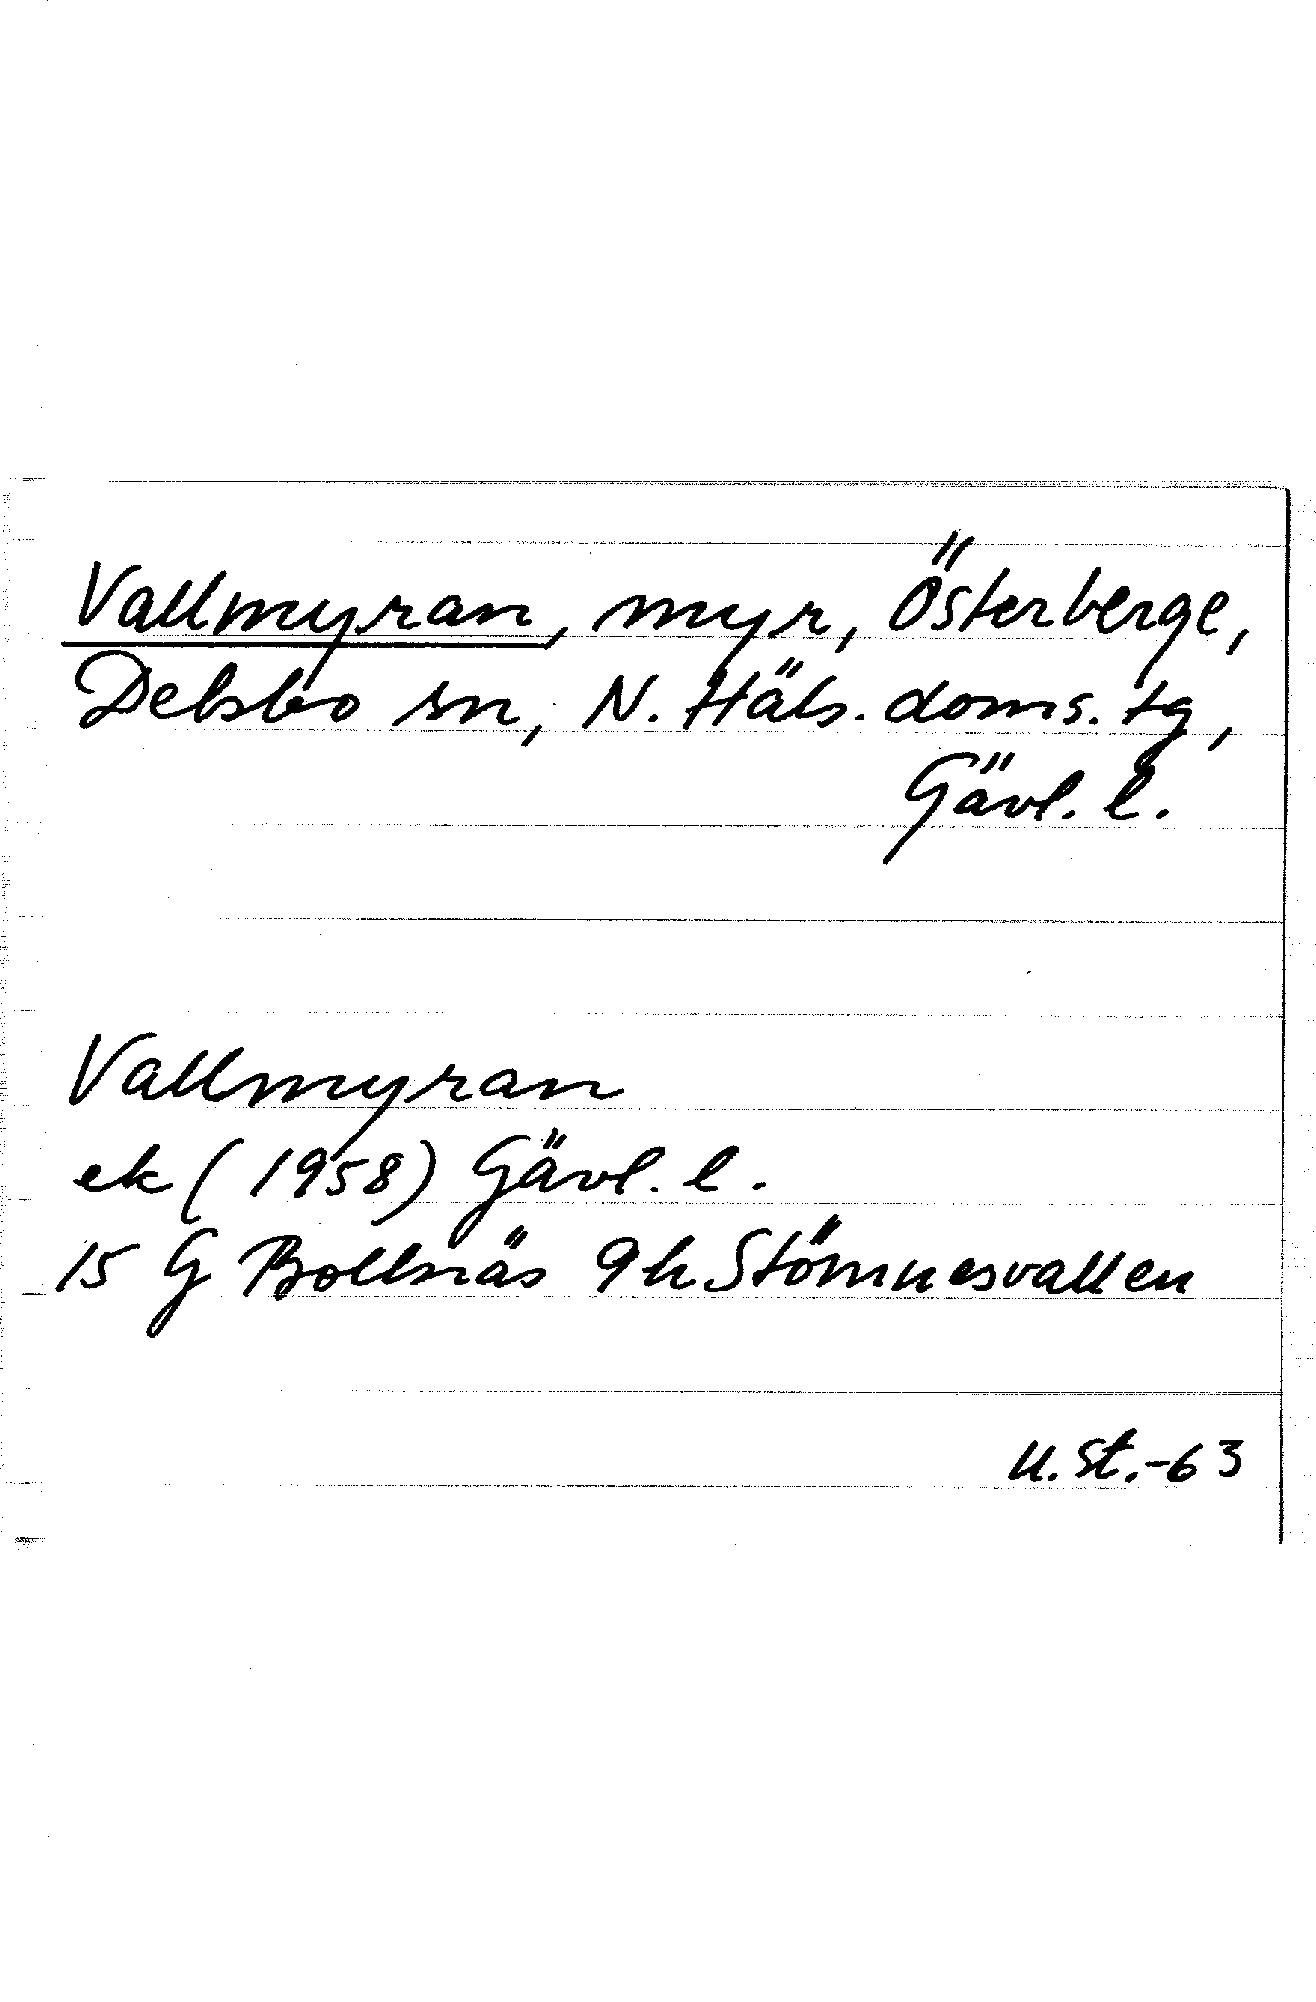 Vallmyran, myr, Österberge,
Delsbo sn, N. Häls. doms. tg,
Gävl. l.
Vallmyran
ek (1958) Gävl. l.
15 G Bollnäs 9h Stömnesvallen
U. St.-63